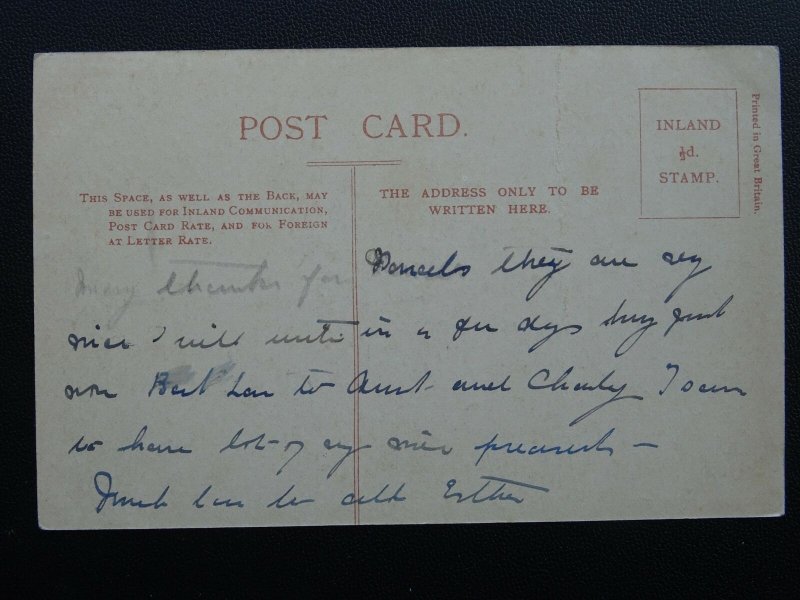 POST CARD.
INLAND
½d.
STAMP.
Printed in Great Britain.
THIS SPACE, AS WELL AS THE BACK, MAY
BE USED FOR INLAND COMMUNICATION,
POST CARD RATE, AND FOR FOREIGN
AT LETTER RATE.
THE ADDRESS ONLY TO BE
WRITTEN HERE.
Many thanks for Parcels they are very
nice I will write in a few days busy just
now Best love to Aunt and Charly I seem
to have lot of very nice presents –
Much love to all Esther